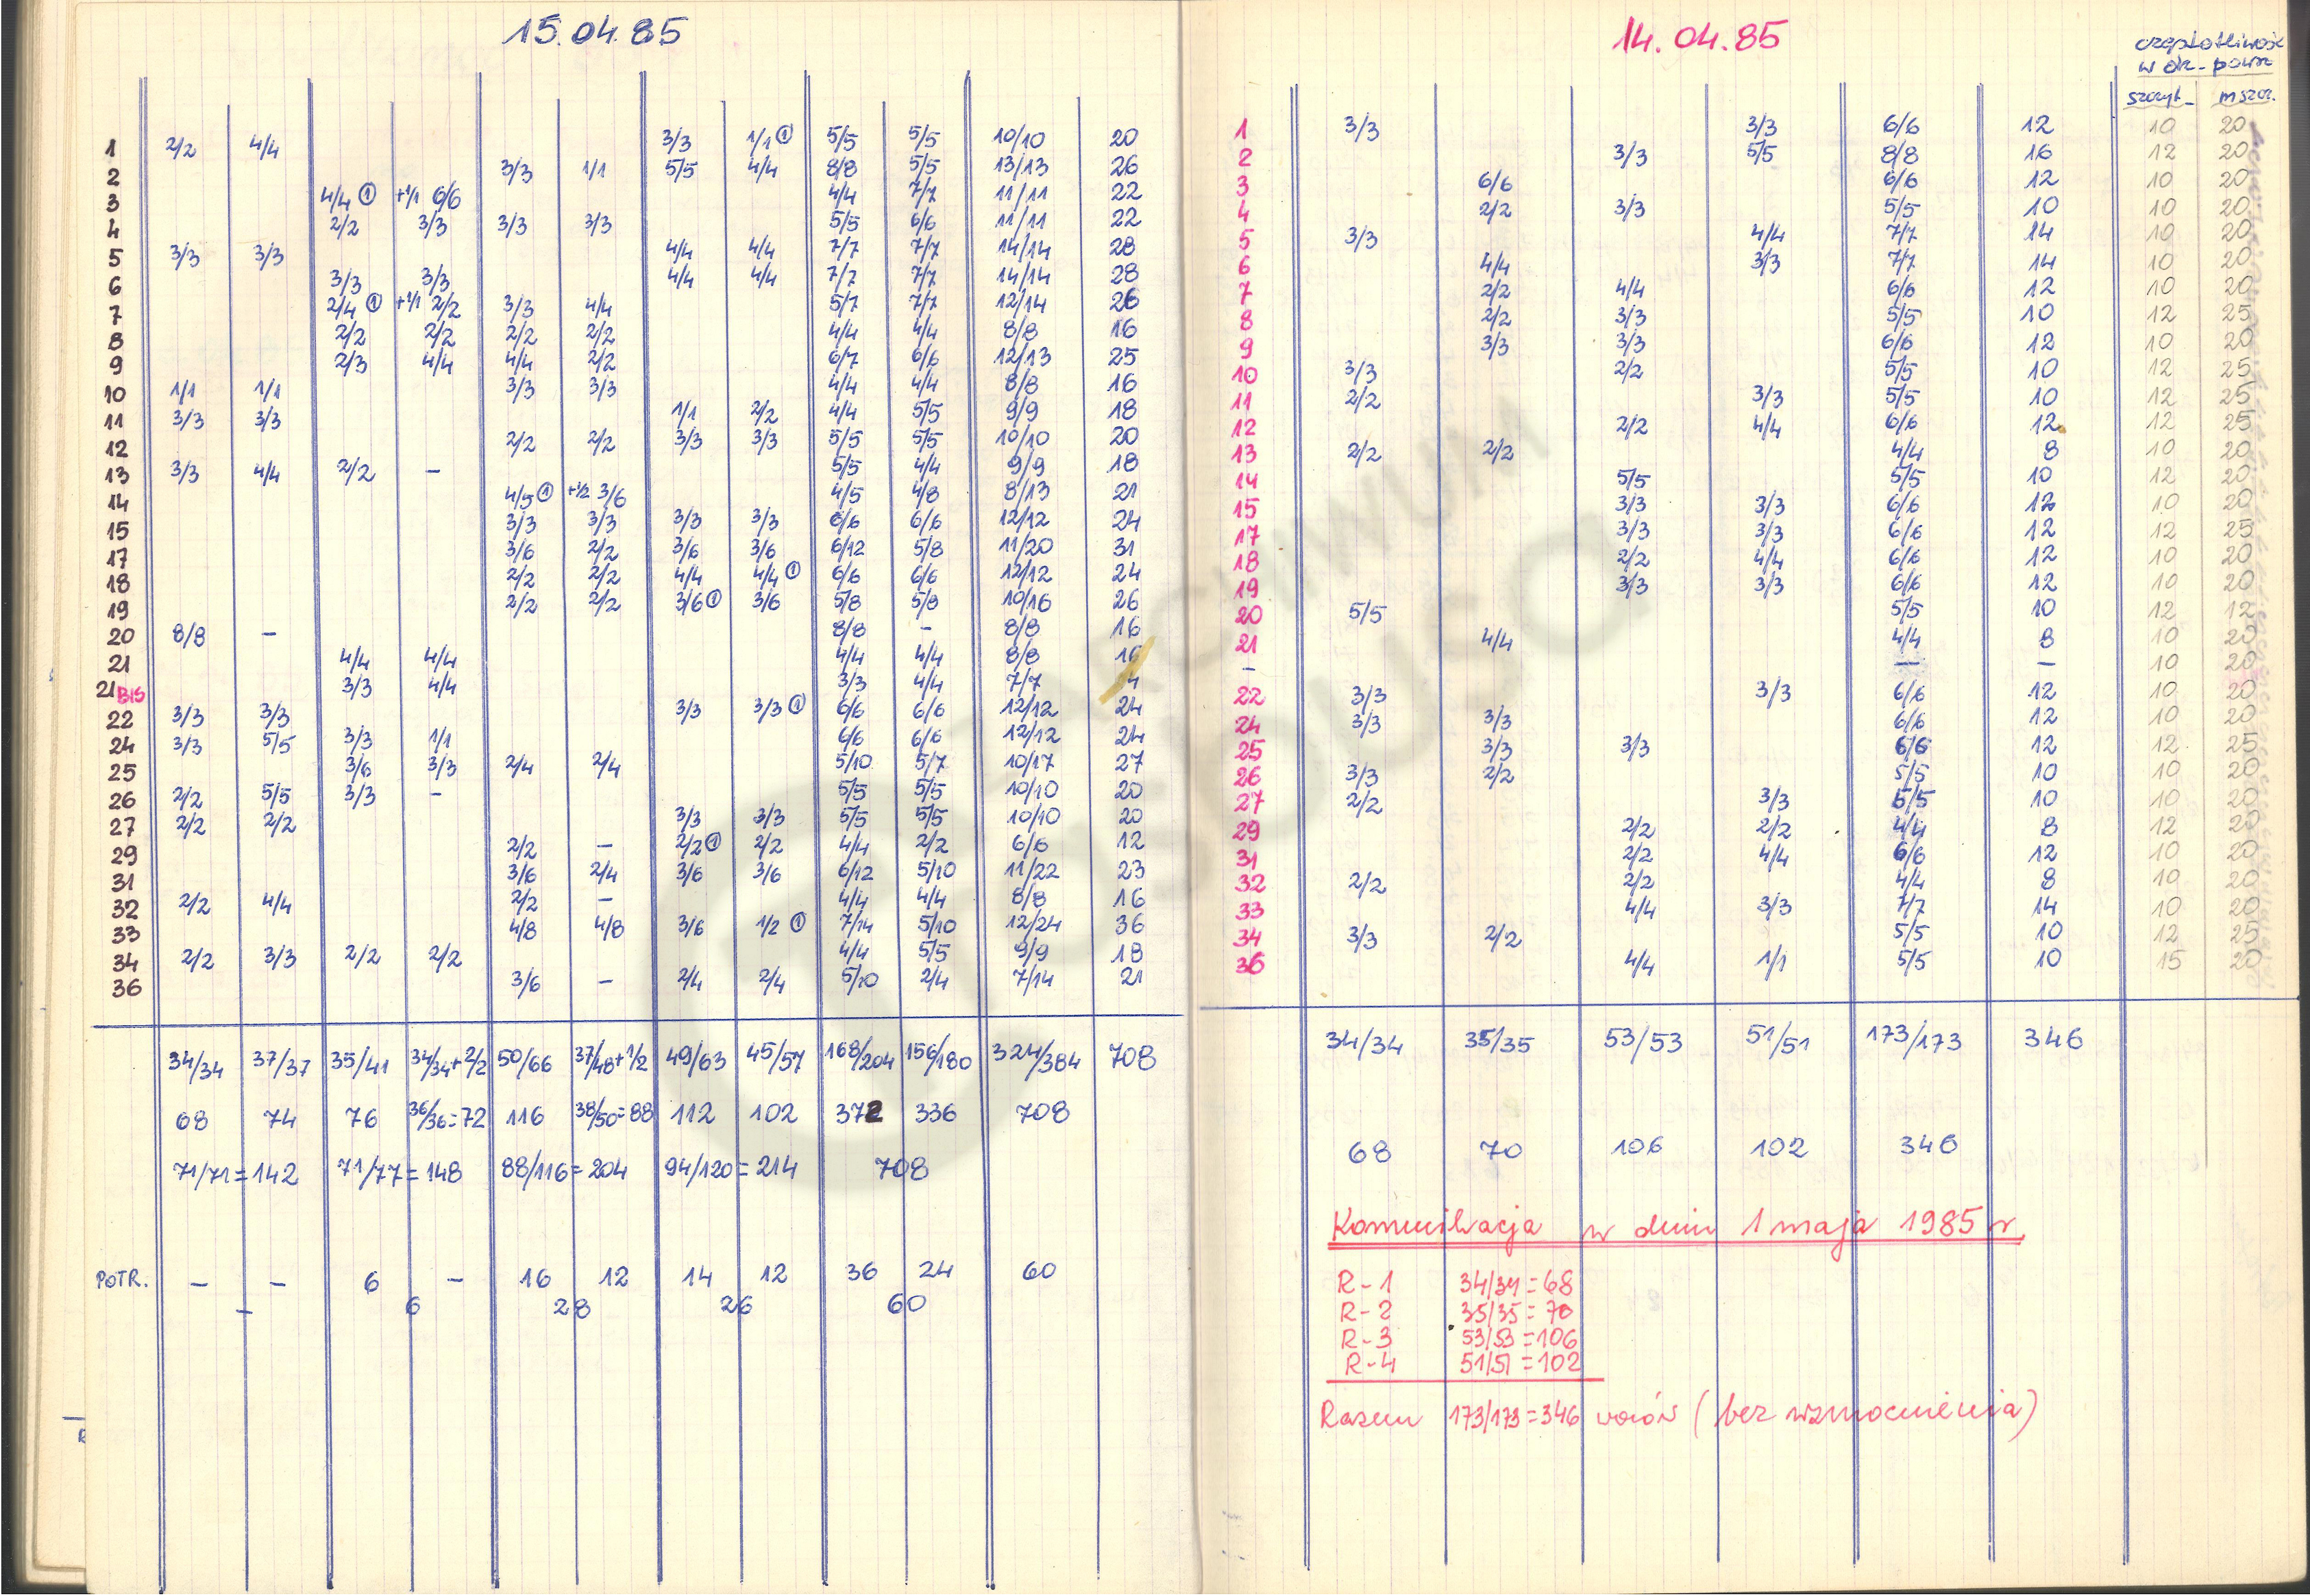 15.04.85
1 2/2 4/4 3/3 1/1 ① 5/5 5/5 10/10 20
2 3/3 1/1 5/5 4/4 8/8 5/5 13/13 26
3 4/4 ① +1/1 6/6 4/4 7/7 11/11 22
4 2/2 3/3 3/3 3/3 5/5 6/6 11/11 22
5 3/3 3/3 4/4 4/4 7/7 7/7 14/14 28
6 3/3 3/3 4/4 4/4 7/7 7/7 14/14 28
7 2/4 ① +1/1 2/2 3/3 4/4 5/7 7/7 12/14 26
8 2/2 2/2 2/2 2/2 4/4 4/4 8/8 16
9 2/3 4/4 4/4 2/2 6/7 6/6 12/13 25
10 1/1 1/1 3/3 3/3 4/4 4/4 8/8 16
11 3/3 3/3 1/1 2/2 4/4 5/5 9/9 18
12 2/2 2/2 3/3 3/3 5/5 5/5 10/10 20
13 3/3 4/4 2/2 – 5/5 4/4 9/9 18
14 4/5 ① +1/2 3/6 4/5 4/8 8/13 21
15 3/3 3/3 3/3 3/3 6/6 6/6 12/12 24
17 3/6 2/2 3/6 3/6 6/12 5/8 11/20 31
18 2/2 2/2 4/4 4/4 ① 6/6 6/6 12/12 24
19 2/2 2/2 3/6 ① 3/6 5/8 5/8 10/16 26
20 8/8 – 8/8 – 8/8 16
21 4/4 4/4 4/4 4/4 8/8 16
21 BIS 3/3 4/4 3/3 4/4 7/7 4
22 3/3 3/3 3/3 3/3 ① 6/6 6/6 12/12 24
24 3/3 5/5 3/3 1/1 6/6 6/6 12/12 24
25 3/6 3/3 2/4 2/4 5/10 5/7 10/17 27
26 2/2 5/5 3/3 – 5/5 5/5 10/10 20
27 2/2 2/2 3/3 3/3 5/5 5/5 10/10 20
29 2/2 – 2/2 ① 2/2 4/4 2/2 6/6 12
31 3/6 2/4 3/6 3/6 6/12 5/10 11/22 23
32 2/2 4/4 2/2 – 4/4 4/4 8/8 16
33 4/8 4/8 3/6 1/2 ① 7/14 5/10 12/24 36
34 2/2 3/3 2/2 2/2 4/4 5/5 9/9 18
36 3/6 – 2/4 2/4 5/10 2/4 7/14 21
34/34 37/37 35/41 34/34+2/2 50/66 37/48+1/2 49/63 45/57 168/204 156/180 324/384 708
68 74 76 36/36=72 116 38/50=88 112 102 372 336 708
71/71=142 71/77=148 88/116=204 94/120=214 708
POTR. – – 6 – 16 12 14 12 36 24 60
– 6 28 26 60
14.04.85
częstotliwość
w ok. powsz
szczyt. m szcz.
1 3/3 3/3 6/6 12 10 20
2 3/3 5/5 8/8 16 12 20
3 6/6 6/6 12 10 20
4 2/2 3/3 5/5 10 10 20
5 3/3 4/4 7/7 14 10 20
6 4/4 3/3 7/7 14 10 20
7 2/2 4/4 6/6 12 10 20
8 2/2 3/3 5/5 10 12 25
9 3/3 3/3 6/6 12 10 20
10 3/3 2/2 5/5 10 12 25
11 2/2 3/3 5/5 10 12 25
12 2/2 4/4 6/6 12 12 25
13 2/2 2/2 4/4 8 10 20
14 5/5 5/5 10 12 20
15 3/3 3/3 6/6 12 10 20
17 3/3 3/3 6/6 12 12 25
18 2/2 4/4 6/6 12 10 20
19 3/3 3/3 6/6 12 10 20
20 5/5 5/5 10 12 12
21 4/4 4/4 8 10 20
– — – 10 20
22 3/3 3/3 6/6 12 10 20
24 3/3 3/3 6/6 12 10 20
25 3/3 3/3 6/6 12 12 25
26 3/3 2/2 5/5 10 10 20
27 2/2 3/3 5/5 10 10 20
29 2/2 2/2 4/4 8 12 20
31 2/2 4/4 6/6 12 10 20
32 2/2 2/2 4/4 8 10 20
33 4/4 3/3 7/7 14 10 20
34 3/3 2/2 5/5 10 12 25
36 4/4 1/1 5/5 10 15 20
34/34 35/35 53/53 51/51 173/173 346
68 70 106 102 346
Komunikacja w dniu 1 maja 1985 r.
R-1 34/34=68
R-2 35/35=70
R-3 53/53=106
R-4 51/51=102
Razem 173/173=346 wozów (bez wzmocnienia)